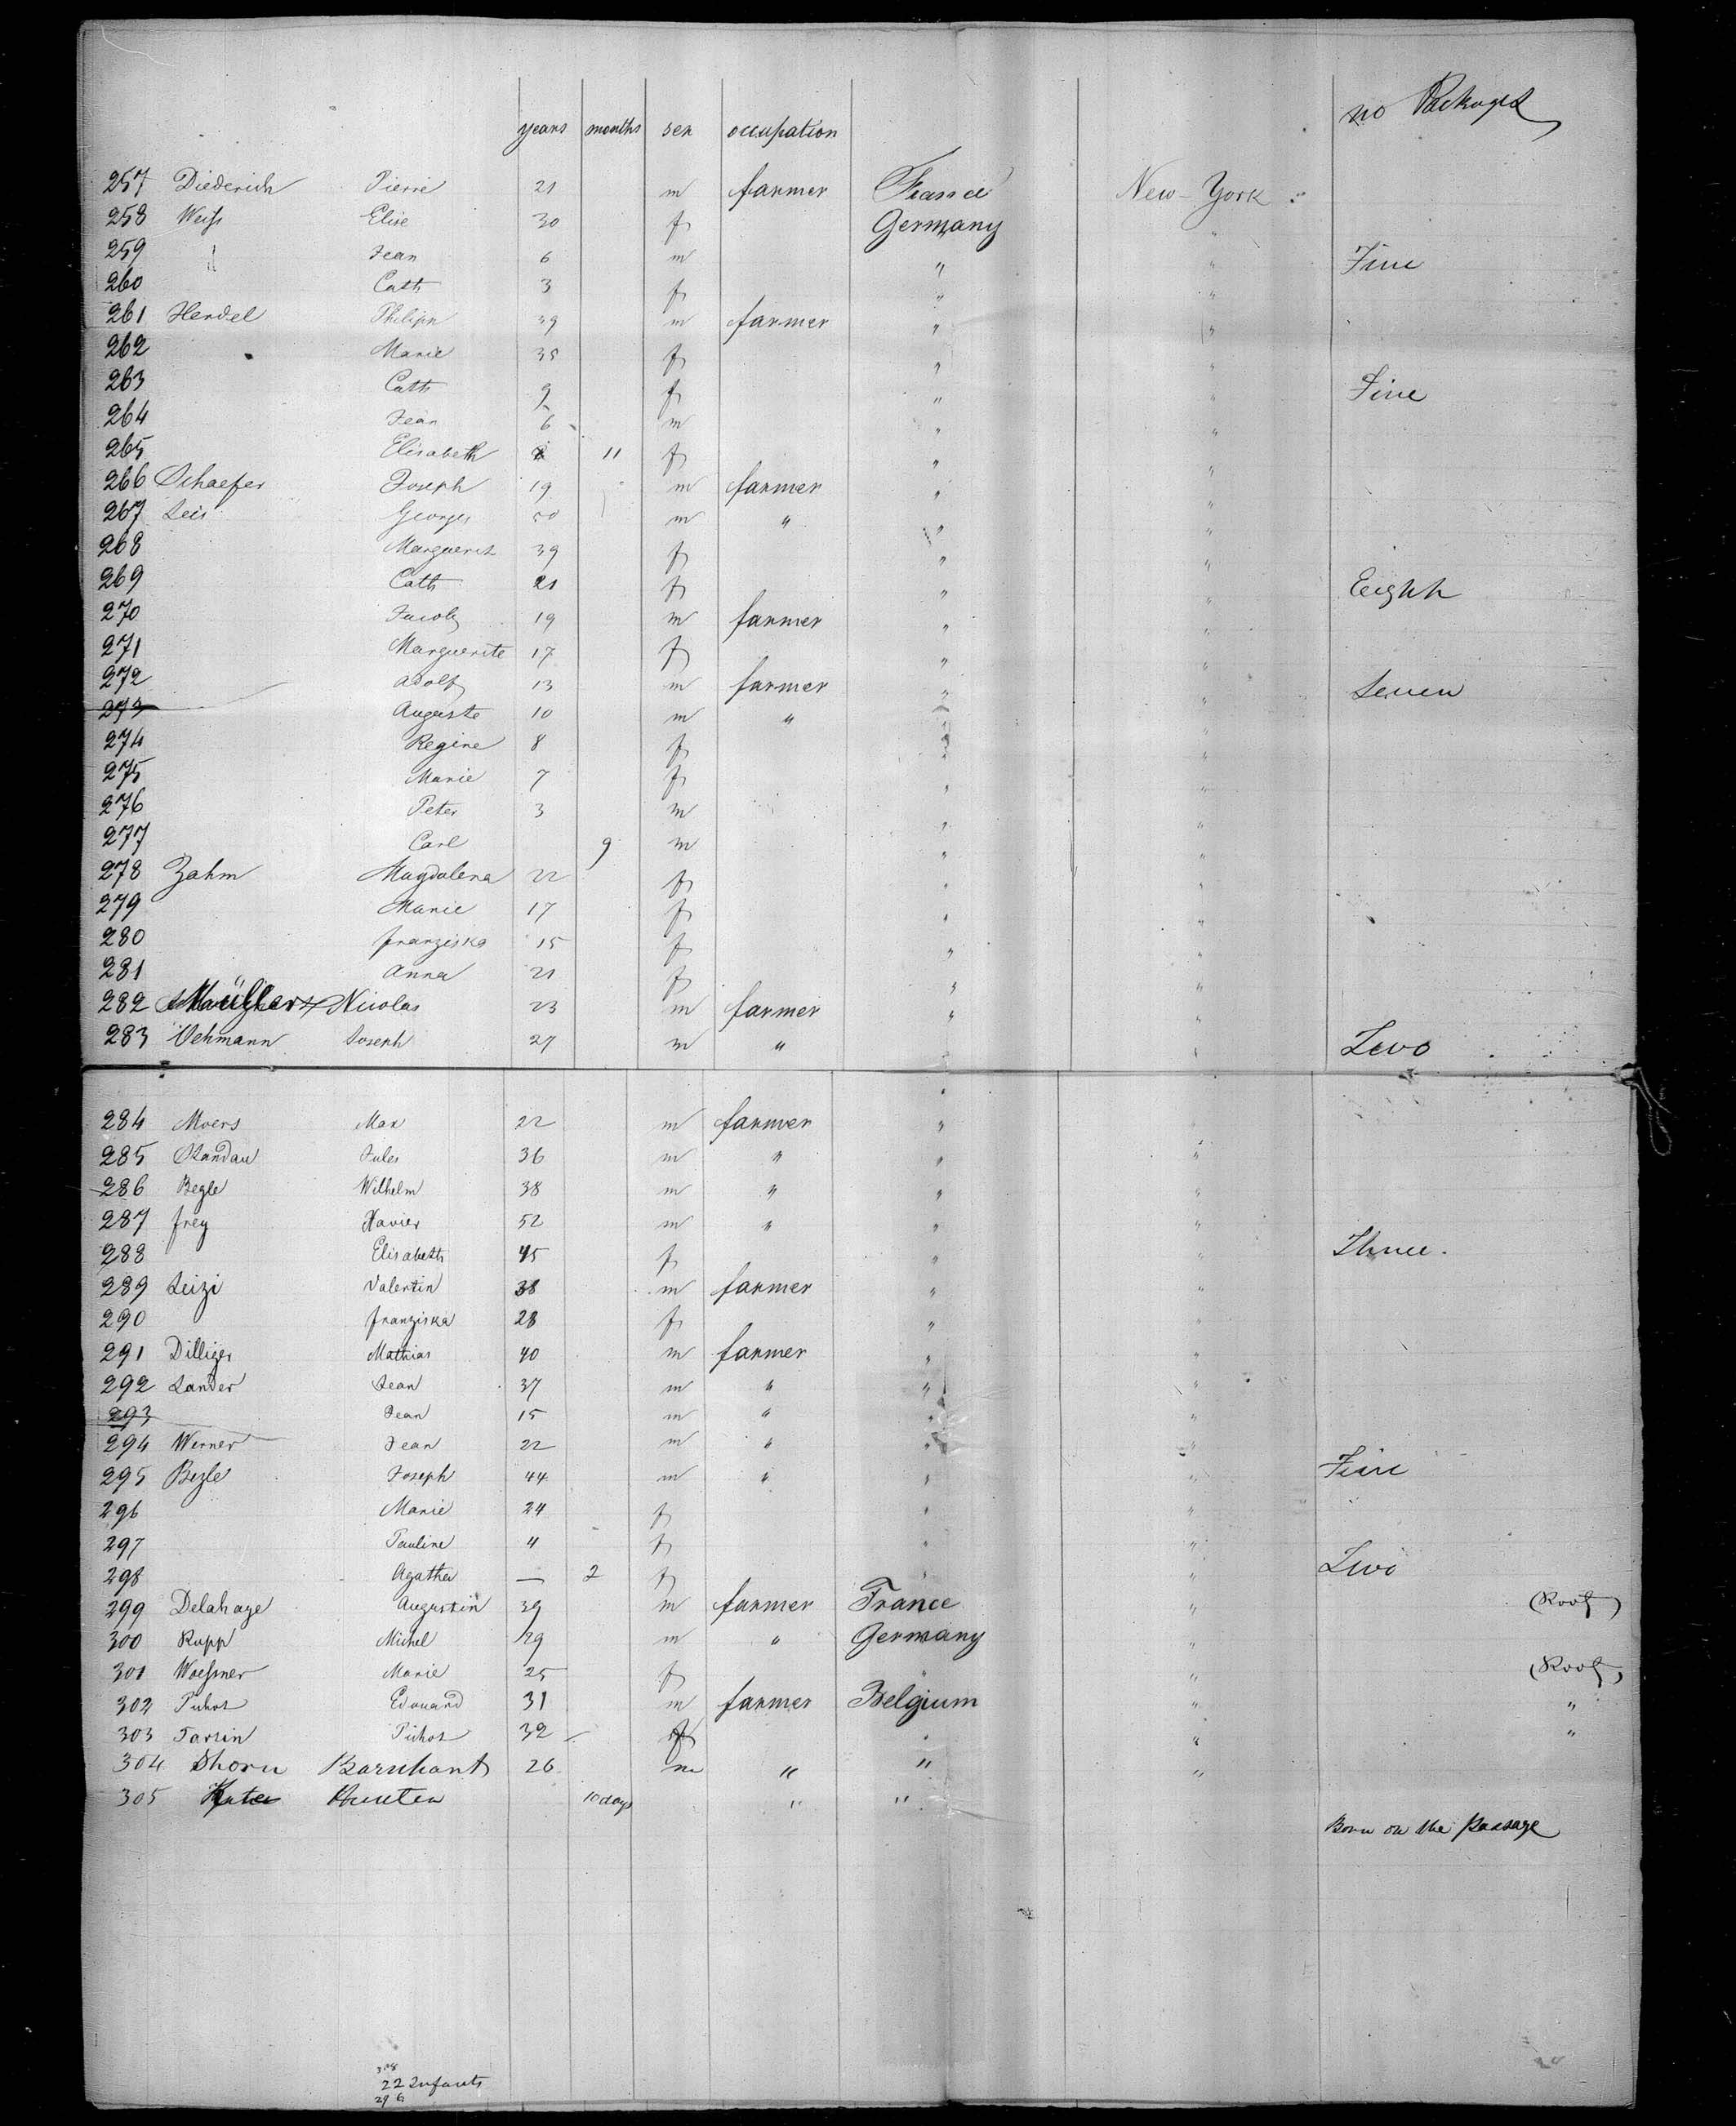 no Packages
years months sex occupation
257 Diederich Pierre 21 m farmer France New-York
258 Weiſs Elise 30 f Germany "
259 " Jean 6 m " " Five
260 Cath 3 f " "
261 Herdel Philipp 39 m farmer " "
262 Marie 35 f " "
263 Cath 9 f " " Five
264 Jean 6 m " "
265 Elisabeth 11 f " "
266 Schaefer Joseph 19 m farmer " "
267 Leis Georges 50 m " " "
268 39 f " "
269 Cath 21 f " " Eight
270 Jacob 19 m farmer " "
271 Marguerite 17 f " "
272 Adolf 13 m farmer " " Seven
273 Auguste 10 m " " "
274 Regine 8 f " "
275 Marie 7 f " "
276 Peter 3 m " "
277 Carl 9 m " "
278 Zahm Magdalena 22 f " "
279 Marie 17 f " "
280 franziska 15 f " "
281 Anna 21 f " "
282 Nicolas 23 m farmer " "
283 Oehmann Joseph 27 m " " " Two
284 Moers Max 22 m farmer "
285 Jules 36 m " " "
286 Begle Wilhelm 38 m " " "
287 frey Xavier 52 m " " "
288 Elisabeth 45 f " " Three
289 Leizi Valentin 38 m farmer " "
290 franziska 28 f " "
291 Dilliger Mathias 40 m farmer " "
292 Sander Jean 37 m " " "
293 Jean 15 m " " "
294 Werner Jean 22 m " " "
295 Begle Joseph 44 m " " " Five
296 Marie 24 f " "
297 Pauline 4 f " "
298 Agatha — 2 f " " Two
299 Delahaye Augustin 39 m farmer France " (Roof)
300 Rupp Michel 29 m " Germany "
301 Woeſsner Marie 25 f " " (Roof)
302 Edouard 31 m farmer Belgium " "
303 Tarsin 32 f " " "
304 Shorn Barnhant 26 m " " "
305 10 days " "
Born on the Passage
22 Infants
296